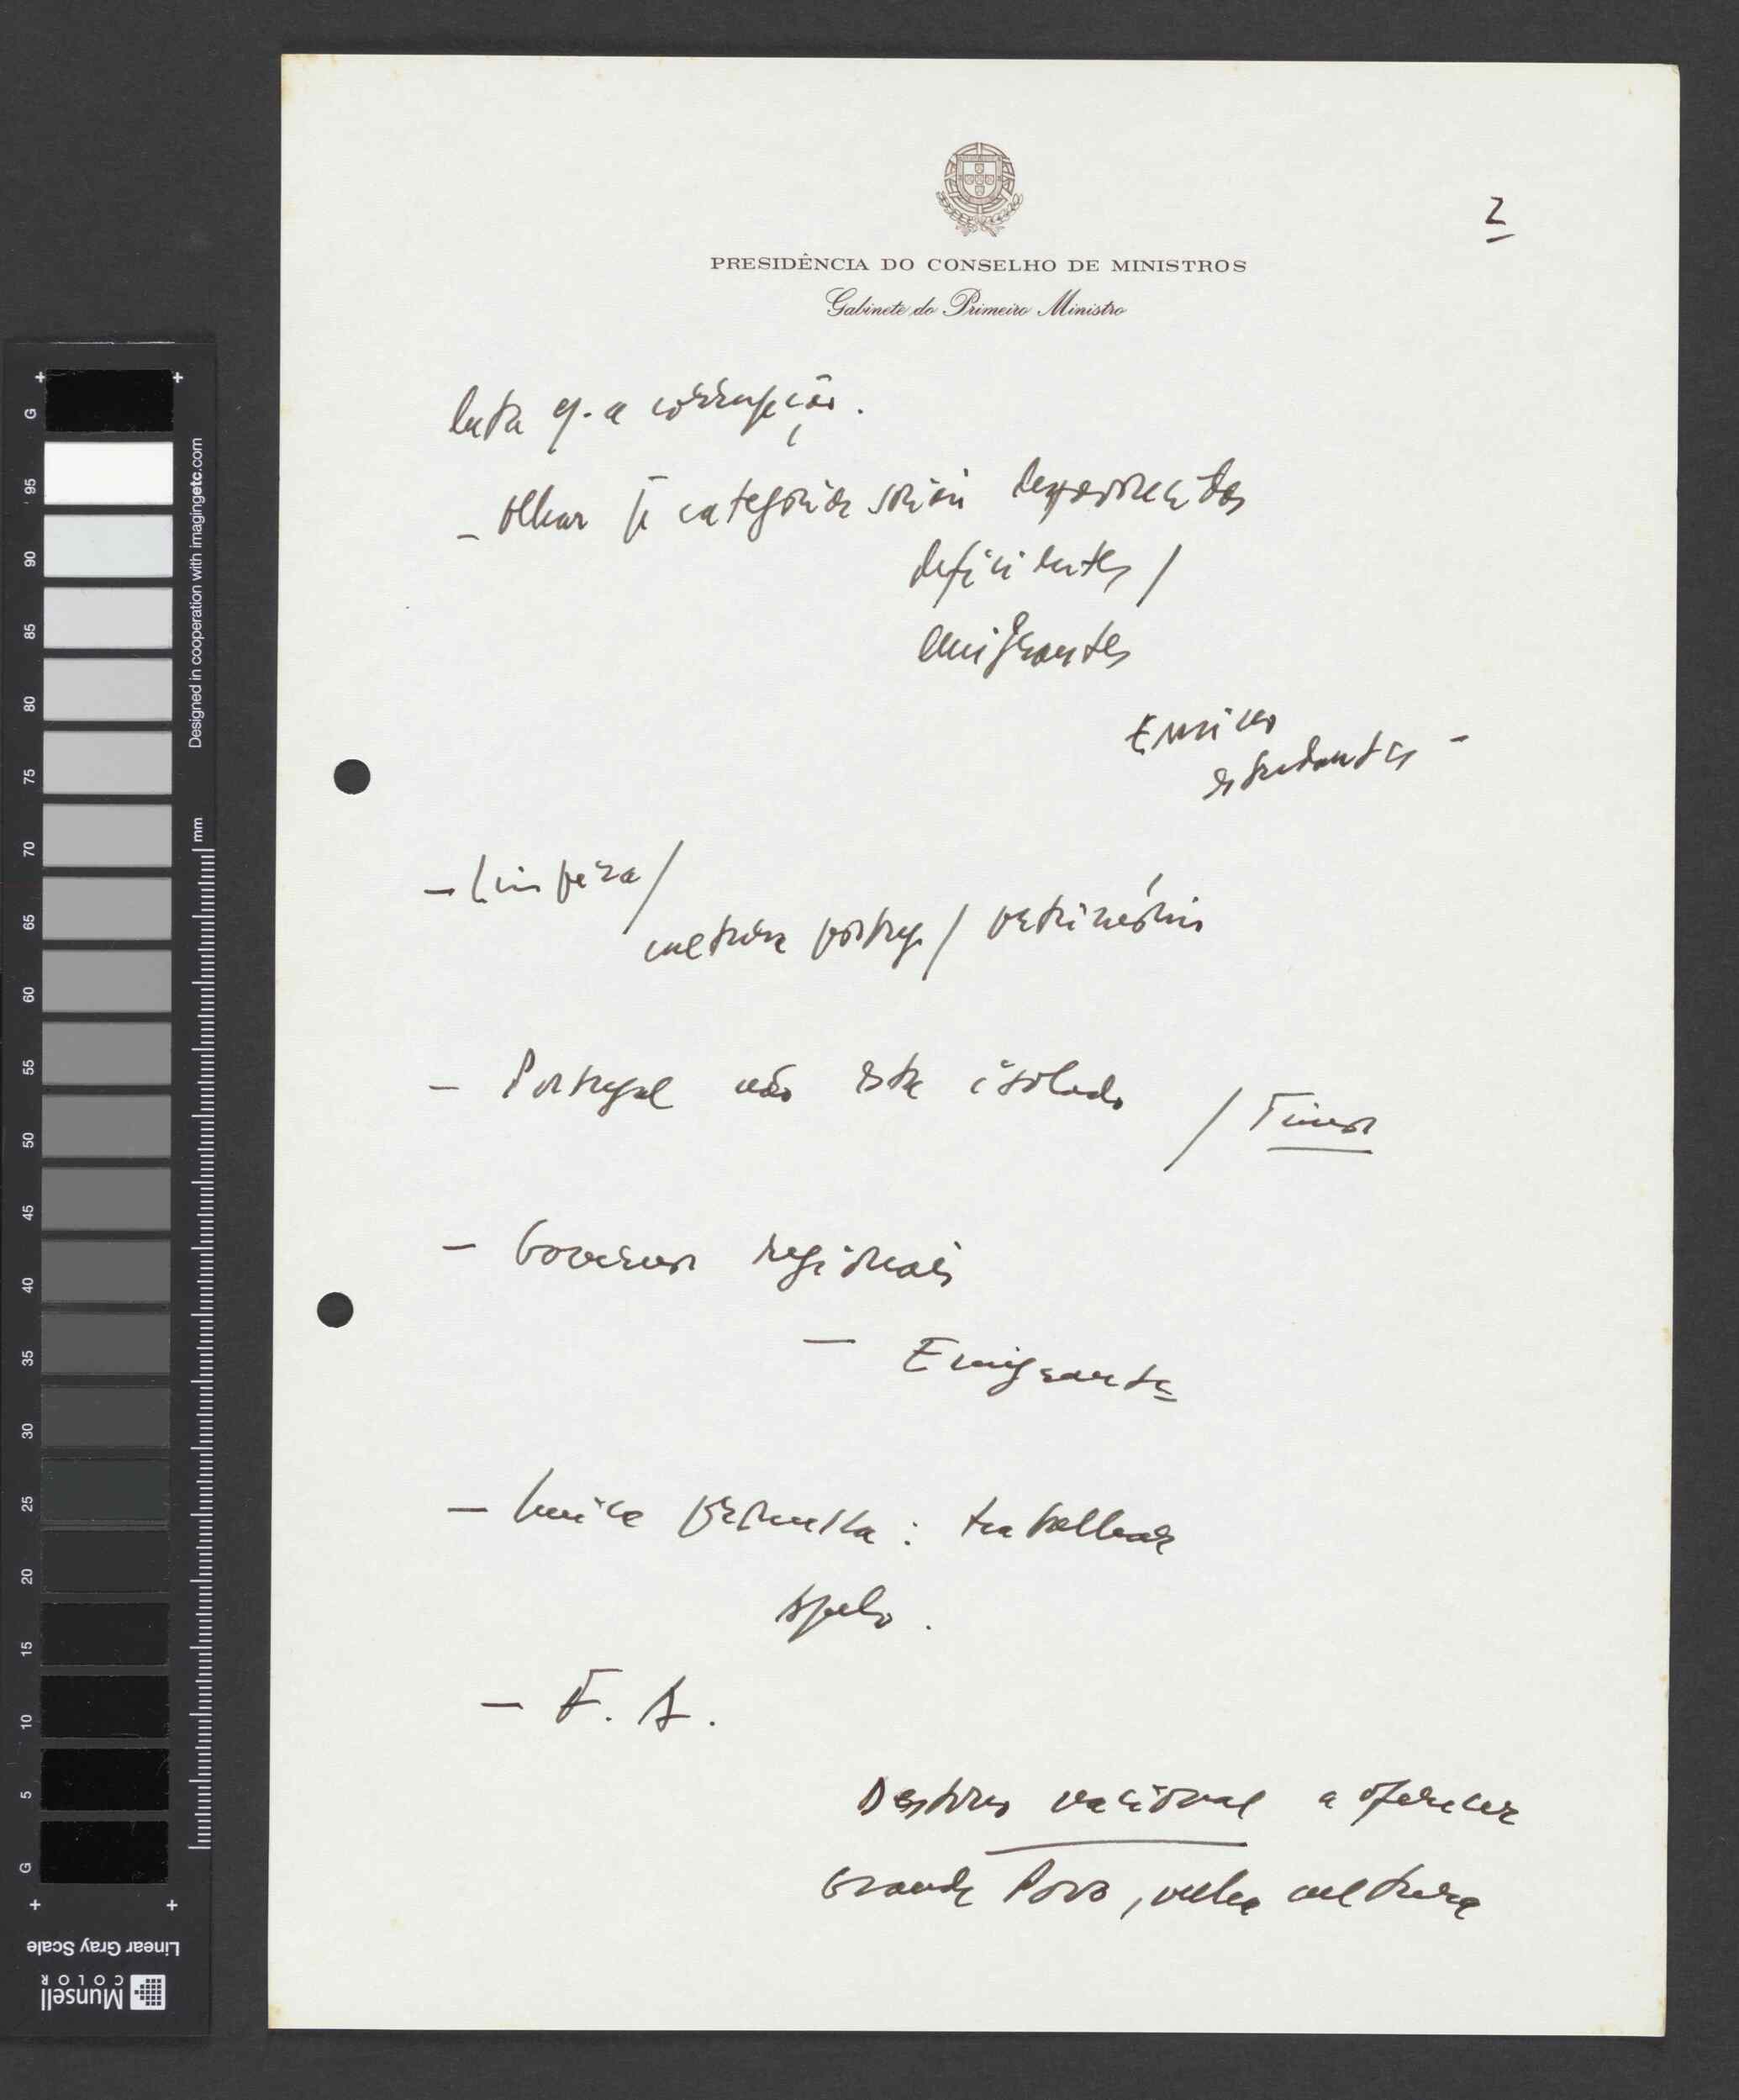 2
PRESIDÊNCIA DO CONSELHO DE MINISTROS
Gabinete do Primeiro Ministro
luta a corrupção.
- olhar categorias sociais desfavorecidas
deficientes /
emigrantes
Ensino
estudantes -
- Limpeza /
cultura portug. / património
- Portugal não está isolado / Timor
- Governos regionais
- Emigrantes
- única promessa : trabalhar
Apelo .
- F. A.
Destino nacional a oferecer
Grande Povo, velha cultura
G 95 90 85 80 75 70 65 60 55 50 45 40 35 30 25 20 15 10 5 G
Designed in cooperation with imagingetc.com
mm
Linear Gray Scale
Munsell
COLOR